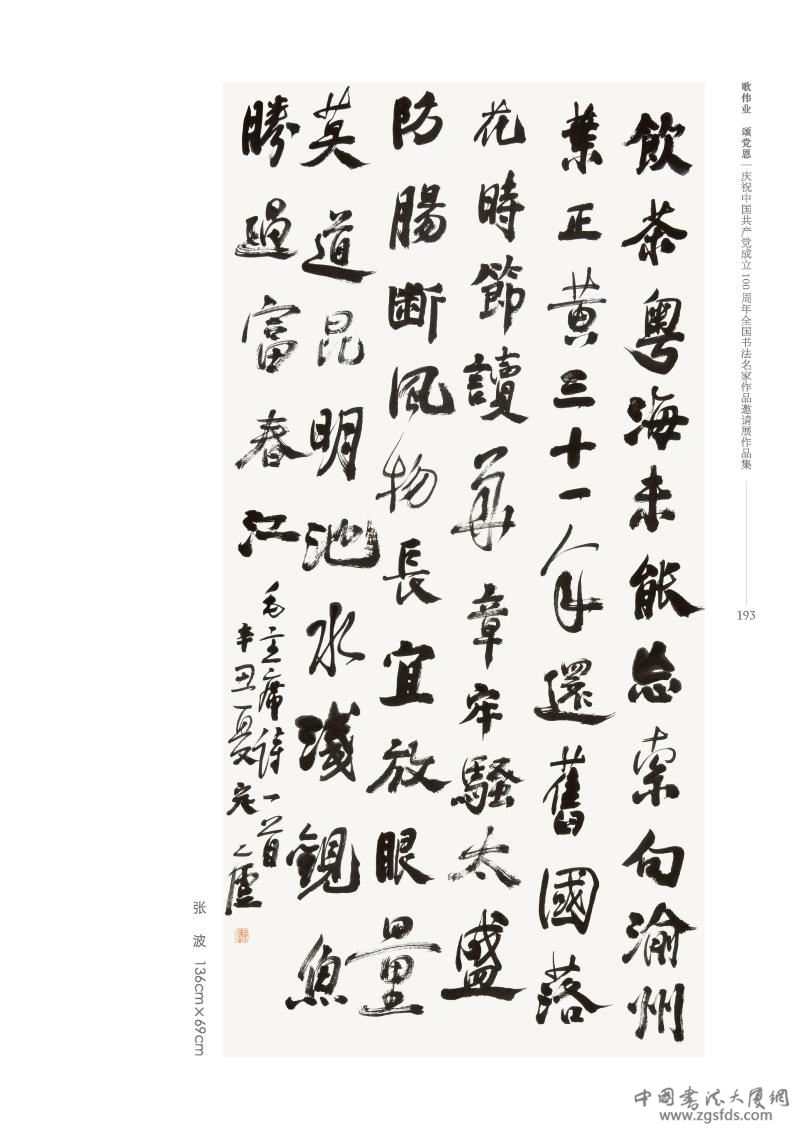 歌伟业 颂党恩 | 庆祝中国共产党成立100周年全国书法名家作品邀请展作品集
193
飲茶粤海未能忘索句渝州
葉正黄三十一年還舊國落
花時節讀華章牢騷太盛
防腸斷風物長宜放眼量
莫道昆明池水淺觀魚
勝過富春江
毛主席詩一首
辛丑夏
张 波 136cm×69cm
中國書法大厦網
www.zgsfds.com